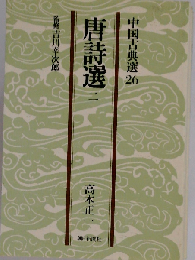 中国古典選26
唐詩選 二
監修・吉川幸次郎
高木正一
朝日新聞社